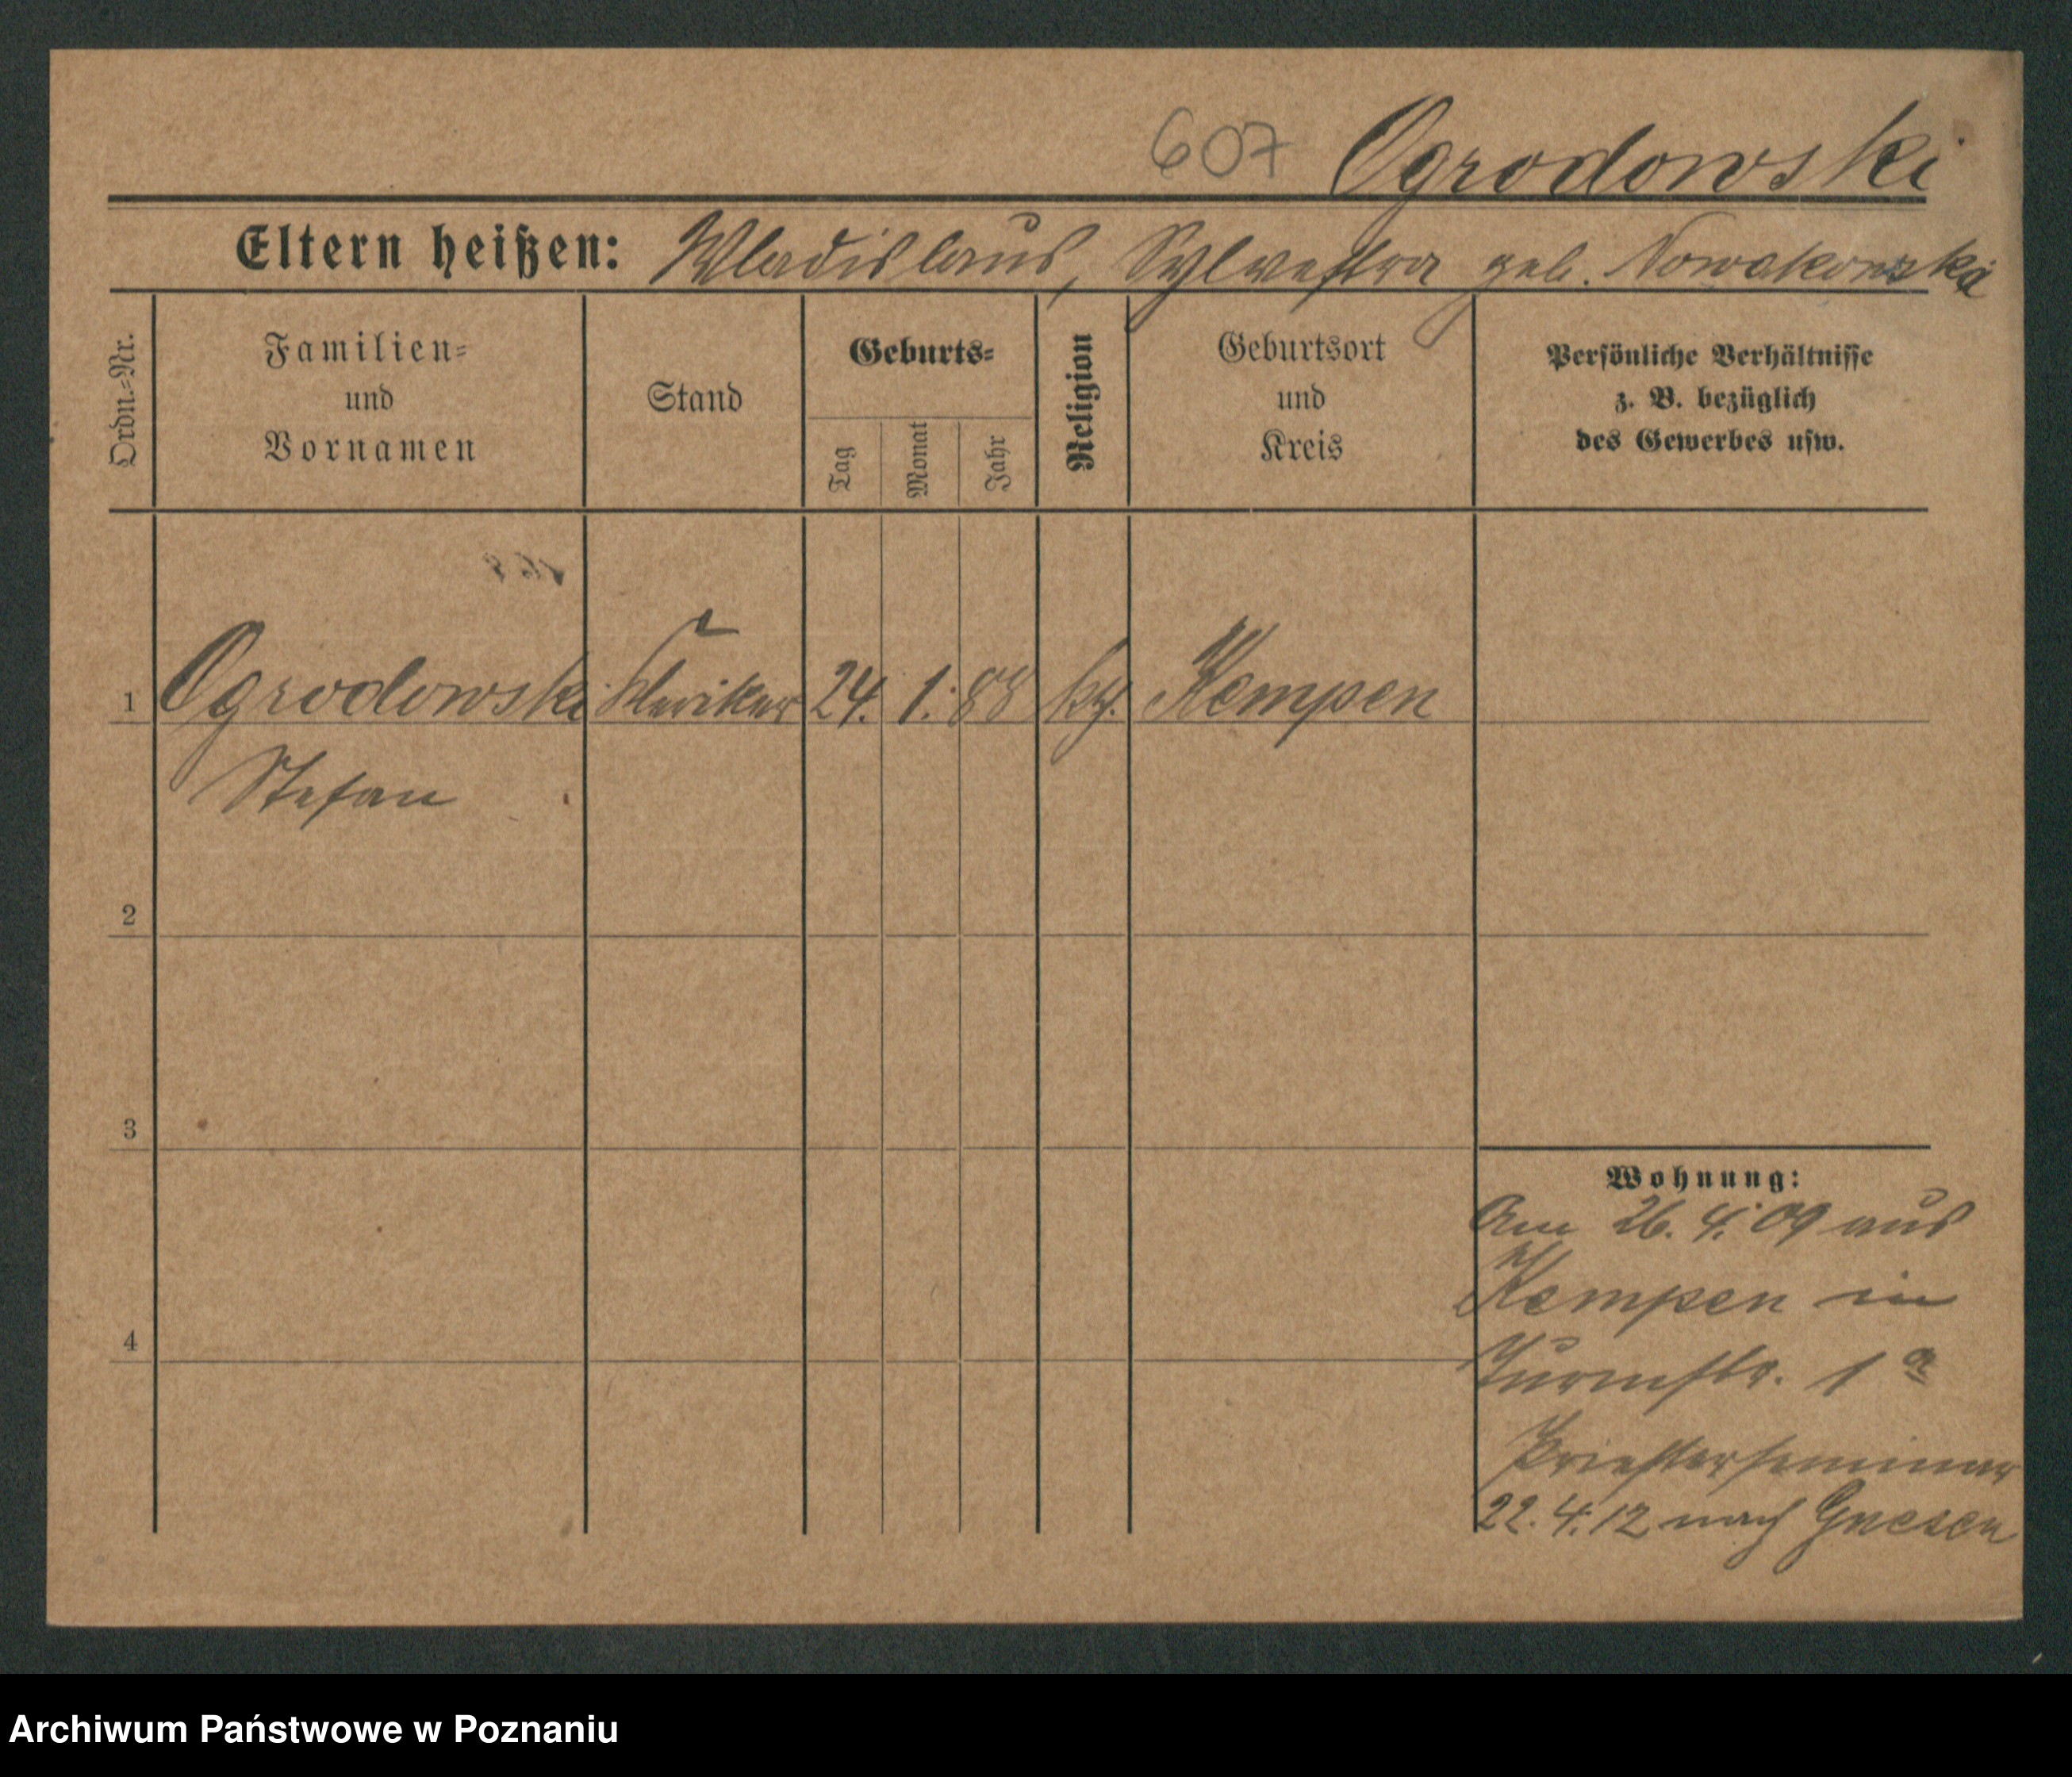 607 Ogrodowski
Eltern heißen: Wladislaus, Sylvestra geb. Nowakowska
Ordn.=Nr.
Familien=
und
Vornamen
Stand
Geburts=
Tag
Monat
Jahr
Religion
Geburtsort
und
Kreis
Persönliche Verhältnisse
z. B. bezüglich
des Gewerbes usw.
1 Ogrodowski Kleriker 24. 1. 88 kth. Kempen
Stefan
2
3
4
Wohnung:
Am 26. 4. 09 aus
Kempen in
Turmstr. 1 a
Priesterseminar
22. 4. 12 nach Gnesen
Archiwum Państwowe w Poznaniu